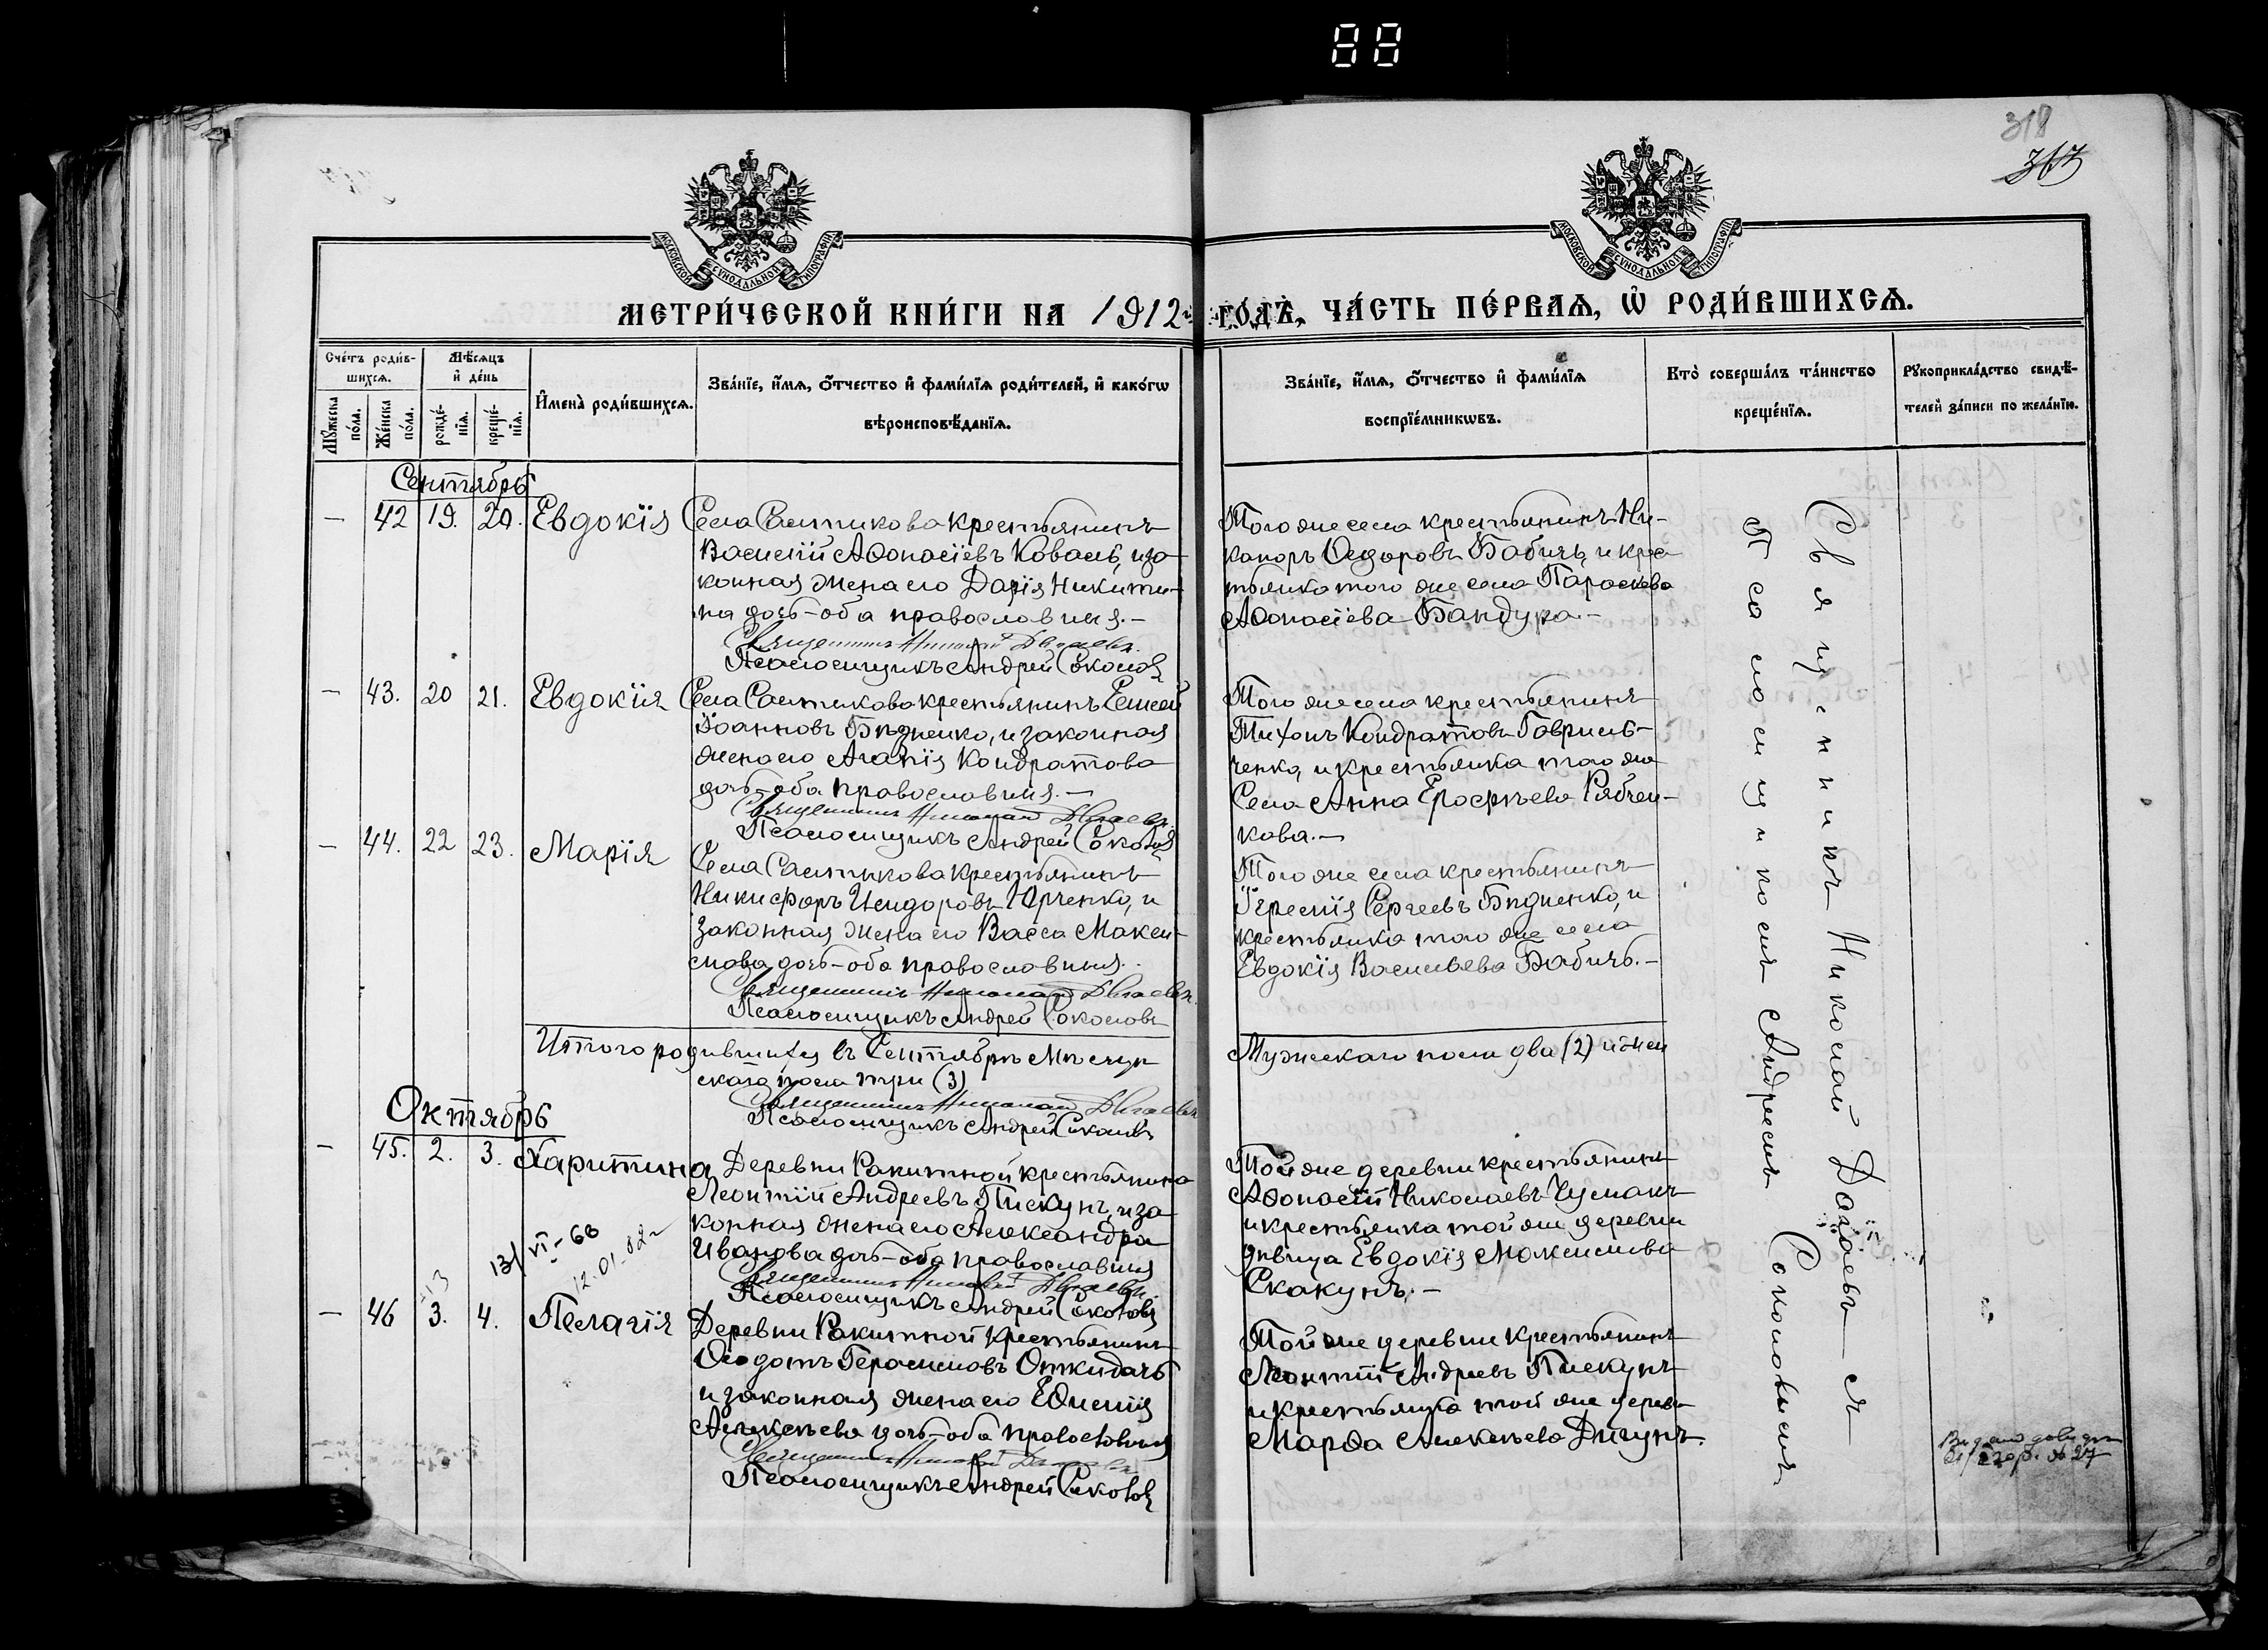 88
318
317
МОСКОВСКОЙ СѴНОДАЛЬНОЙ ТИПОГРАФІИ
МОСКОВСКОЙ СѴНОДАЛЬНОЙ ТИПОГРАФІИ
МЕТРИ́ЧЕСКОЙ КНИ́ГИ НА 1912 ГО́ДЪ, ЧА́СТЬ ПЕ́РВАѦ, Ѽ РОДИ́ВШИХСѦ.
Сче́тъ роди́в-
шихсѧ.
Мѣ́сѧцъ
и҆ де́нь
Мꙋ́жеска
по́ла.
Же́нска
по́ла.
рожде́-
нїѧ.
креще́-
нїѧ.
И҆мена̀ роди́вшихсѧ.
Зва́нїе, и҆́мѧ, ѻ҆́тчество и҆ фами́лїѧ роди́телей, и҆ како́гѡ
вѣроисповѣ́данїѧ.
Зва́нїе, и҆́мѧ, ѻ҆́тчество и҆ фами́лїѧ
воспрїе́мникѡвъ.
Кто̀ соверша́лъ та́инство
креще́нїѧ.
Рꙋкоприкла́дство свидѣ́-
телей за́писи по жела́нїю.
Сентябрь
— 42 19. 20. Евдокія
Села Салтикова крестьянинъ
Василій Аѳонасіевъ Коваль, и за
конная жена его Дарія Никити-
на дочь - оба православныя. —
Священникъ Николай Дѣгаевъ.
Псаломщикъ Андрей Соколовъ
Того же села крестьянинъ Ни-
каноръ Сидоровъ Бабичъ, и крес
тьянка того же села Параскева
Аѳонасіева Бандура. —
— 43. 20 21. Евдокія
Села Салтикова крестьянинъ
Іоанновъ Бѣдненко, и законная
жена его Агапія Кондратова
дочь - оба православныя. —
Священникъ Николай Дѣгаевъ.
Псаломщикъ Андрей Соколовъ
Того же села крестьянинъ
Тихонъ Кондратовъ Гавриль-
ченко, и крестьянка того же
Села Анна Ерофѣева Рябчен-
кова. —
— 44. 22 23. Марія
Села Салтикова крестьянинъ
Никифоръ Исидоровъ Юрченко, и
законная жена его Васса Макси-
мова дочь - оба православныя.
Священникъ Николай Дѣгаевъ.
Псаломщикъ Андрей Соколовъ
Того же села крестьянинъ
Іеремія Сергеевъ Бѣдненко, и
крестьянка того же села
Евдокія Васильева Бабичъ. —
Итого родившихся въ Сентябрѣ мѣсяцѣ
Мужескаго пола два (2) и жен
скаго пола три (3)
Священникъ Николай Дѣгаевъ
Псаломщикъ Андрей Соколовъ
Октябрь
— 45. 2. 3. Харитина
Деревни Ракитной крестьянинъ
Леонтій Андреевъ Пискунъ, и за
конная жена его Александра
Иванова дочь - оба православныя
Священникъ Николай Дѣгаевъ.
Псаломщикъ Андрей Соколовъ
Той же деревни крестьянинъ
Аѳонасій Николаевъ Чумакъ
и крестьянка той же деревни
дѣвица Евдокія Максимова
Скакунъ. —
13/VI - 68
12.01.82 г
— 46 3. 4. Пелагія
Деревни Ракитной крестьянинъ
Ѳеодотъ Герасимовъ Откидачь
и законная жена его Евфимія
Алексѣева дочь - оба православныя
Священникъ Николай Дѣгаевъ
Псаломщикъ Андрей Соколовъ
Той же деревни крестьянинъ
Леонтій Андреевъ Пискунъ
и крестьянка той же дерев.
Марфа Алексѣева Дигунъ.
Священникъ Николай Дѣгаевъ - съ
Псаломщикомъ Андреемъ Соколовымъ
№ 27